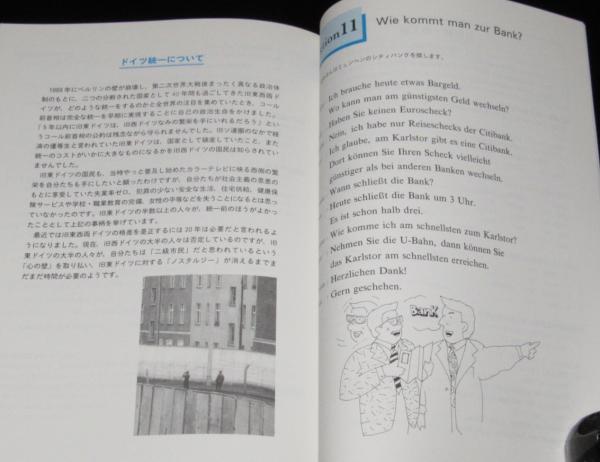 ドイツ統一について
1989年にベルリンの壁が崩壊し、第二次世界大戦後まったく異なる政治体
制のもとに、二つの分断された国家として40年間も過ごしてきた旧東西両ド
イツが、どのような統一をするのかと全世界の注目を集めていたとき、コール
前首相は完全な統一を早期に実現することに自己の政治生命をかけました。
「5年以内に旧東ドイツは、旧西ドイツなみの繁栄を手にいれるだろう」とい
うコール前首相の公約は残念ながら守られませんでした。旧ソ連圏のなかで経
済の優等生と言われていた旧東ドイツは、国家として破産していたこと、また
統一のコストがいかに大きなものになるかを旧西ドイツの国民は知らされてい
ませんでした。
旧東ドイツの国民も、当時やっと普及し始めたカラーテレビに映る西側の繁
栄を自分たちも手にしたいと願ったわけですが、自分たちが社会主義の恩恵の
もとに享受していた失業率ゼロ、犯罪の少ない安全な生活、住宅供給、健康保
険サービスや学校・職業教育の完備、女性の平等などを失うことになるとは思っ
ていなかったのです。旧東ドイツの半数以上の人々が、統一前のほうがよかっ
たこととして上記の事柄を挙げています。
最近では旧東西両ドイツの格差を是正するには20年は必要だと言われるよ
うになりました。現在、旧西ドイツの大半の人々は否定しているのですが、旧
東ドイツの大半の人々が、自分たちは「二級市民」だと思われているという
「心の壁」を取り払い、旧東ドイツに対する「ノスタルジー」が消えるまでま
だまだ時間が必要のようです。
tion11
Wie kommt man zur Bank?
はミュンヘンのシティバンクを探します。
Ich brauche heute etwas Bargeld.
Wo kann man am günstigsten Geld wechseln?
Haben Sie keinen Euroscheck?
Nein, ich habe nur Reiseschecks der Citibank.
Ich glaube, am Karlstor gibt es eine Citibank.
Dort können Sie Ihren Scheck vielleicht
günstiger als bei anderen Banken wechseln.
Wann schließt die Bank?
Heute schließt die Bank um 3 Uhr.
Es ist schon halb drei.
Wie komme ich am schnellsten zum Karlstor?
Nehmen Sie die U-Bahn, dann können Sie
das Karlstor am schnellsten erreichen.
Herzlichen Dank!
Gern geschehen.
Bank